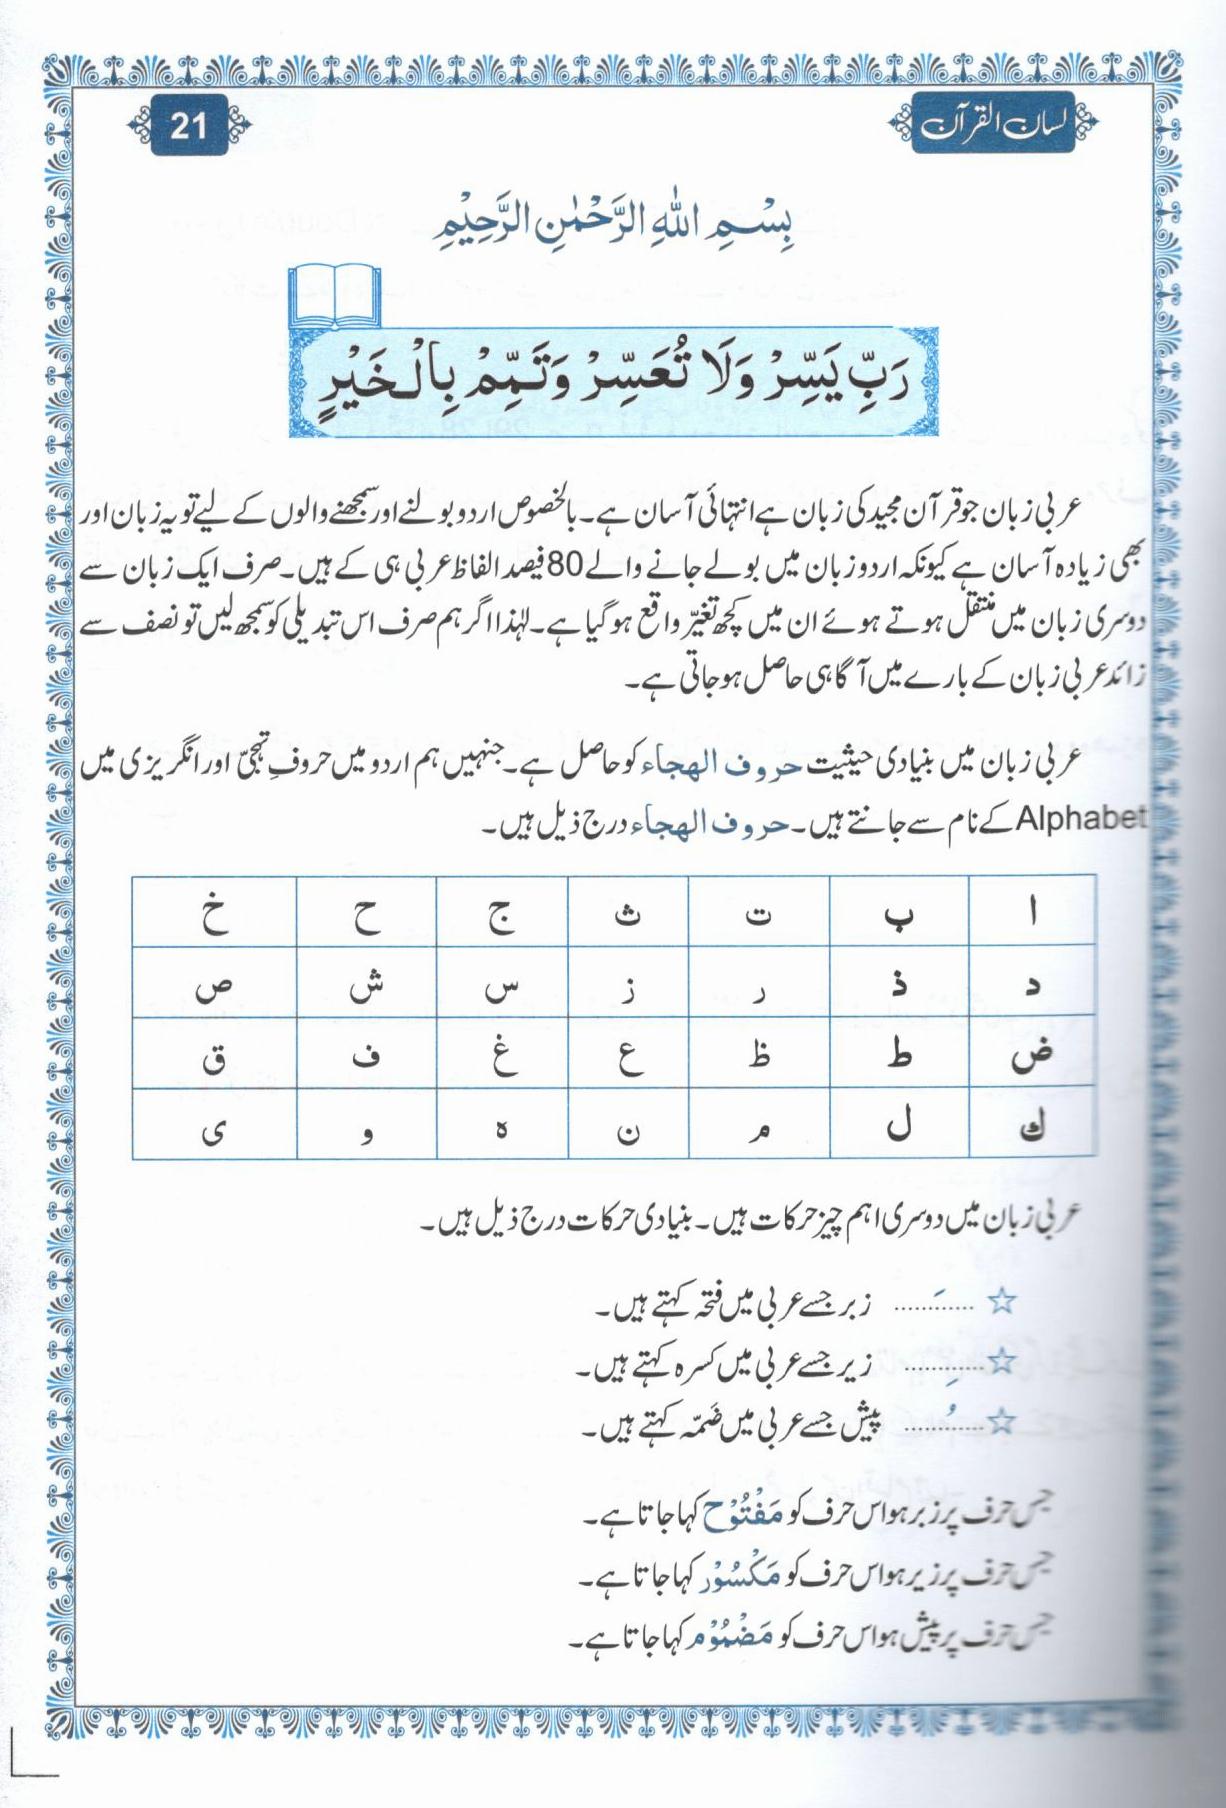 لسان القرآن
21
بِسْمِ اللهِ الرَّحْمٰنِ الرَّحِيْمِ
رَبِّ يَسِّرْ وَلَا تُعَسِّرْ وَتَمِّمْ بِالْخَيْرِ
عربی زبان جو قرآن مجید کی زبان ہے انتہائی آسان ہے۔ بالخصوص اردو بولنے اور سمجھنے والوں کے لیے تو یہ زبان اور
بھی زیادہ آسان ہے کیونکہ اردو زبان میں بولے جانے والے 80 فیصد الفاظ عربی ہی کے ہیں۔ صرف ایک زبان سے
دوسری زبان میں منتقل ہوتے ہوئے ان میں کچھ تغیّر واقع ہو گیا ہے۔ لہٰذا اگر ہم صرف اس تبدیلی کو سمجھ لیں تو نصف سے
زائد عربی زبان کے بارے میں آگاہی حاصل ہو جاتی ہے۔
عربی زبان میں بنیادی حیثیت حروف الهجاء کو حاصل ہے۔ جنہیں ہم اردو میں حروفِ تہجّی اور انگریزی میں
Alphabet کے نام سے جانتے ہیں۔ حروف الهجاء درج ذیل ہیں۔
ا ب ت ث ج ح خ
د ذ ر ز س ش ص
ض ط ظ ع غ ف ق
ك ل م ن ه و ی
عربی زبان میں دوسری اہم چیز حرکات ہیں۔ بنیادی حرکات درج ذیل ہیں۔
☆ .....َ..... زبر جسے عربی میں فتحہ کہتے ہیں۔
☆ .....ِ..... زیر جسے عربی میں کسرہ کہتے ہیں۔
☆ .....ُ..... پیش جسے عربی میں ضَمّہ کہتے ہیں۔
جس حرف پر زبر ہو اس حرف کو مَفْتُوْح کہا جاتا ہے۔
جس حرف پر زیر ہو اس حرف کو مَكْسُوْر کہا جاتا ہے۔
جس حرف پر پیش ہو اس حرف کو مَضْمُوْم کہا جاتا ہے۔